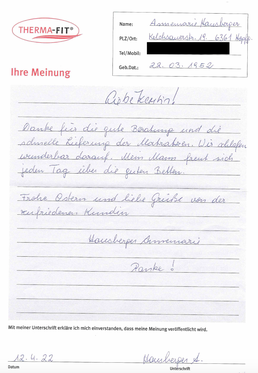 THERMA-FIT®
Ihre Meinung
Name: Annemarie Hausberger
PLZ/Ort: Kelchsauerstr. 19 6361 Hopfg.
Tel/Mobil:
Geb.Dat.: 22.03.1952
Liebe Kerstin!
Danke für die gute Beratung und die
schnelle Lieferung der Matratzen. Wir schlafen
wunderbar darauf. Mein Mann freut sich
jeden Tag über die guten Betten.
Frohe Ostern und liebe Grüße von der
zufriedenen Kunden
Hausberger Annemarie
Danke!
Mit meiner Unterschrift erkläre ich mich einverstanden, dass meine Meinung veröffentlicht wird.
12.4.22 Hausberger A.
Datum Unterschrift